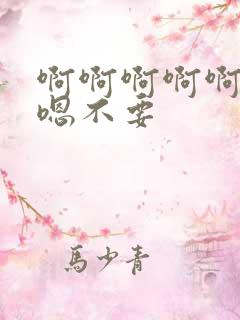 啊啊啊啊啊
嗯不要
馬少青